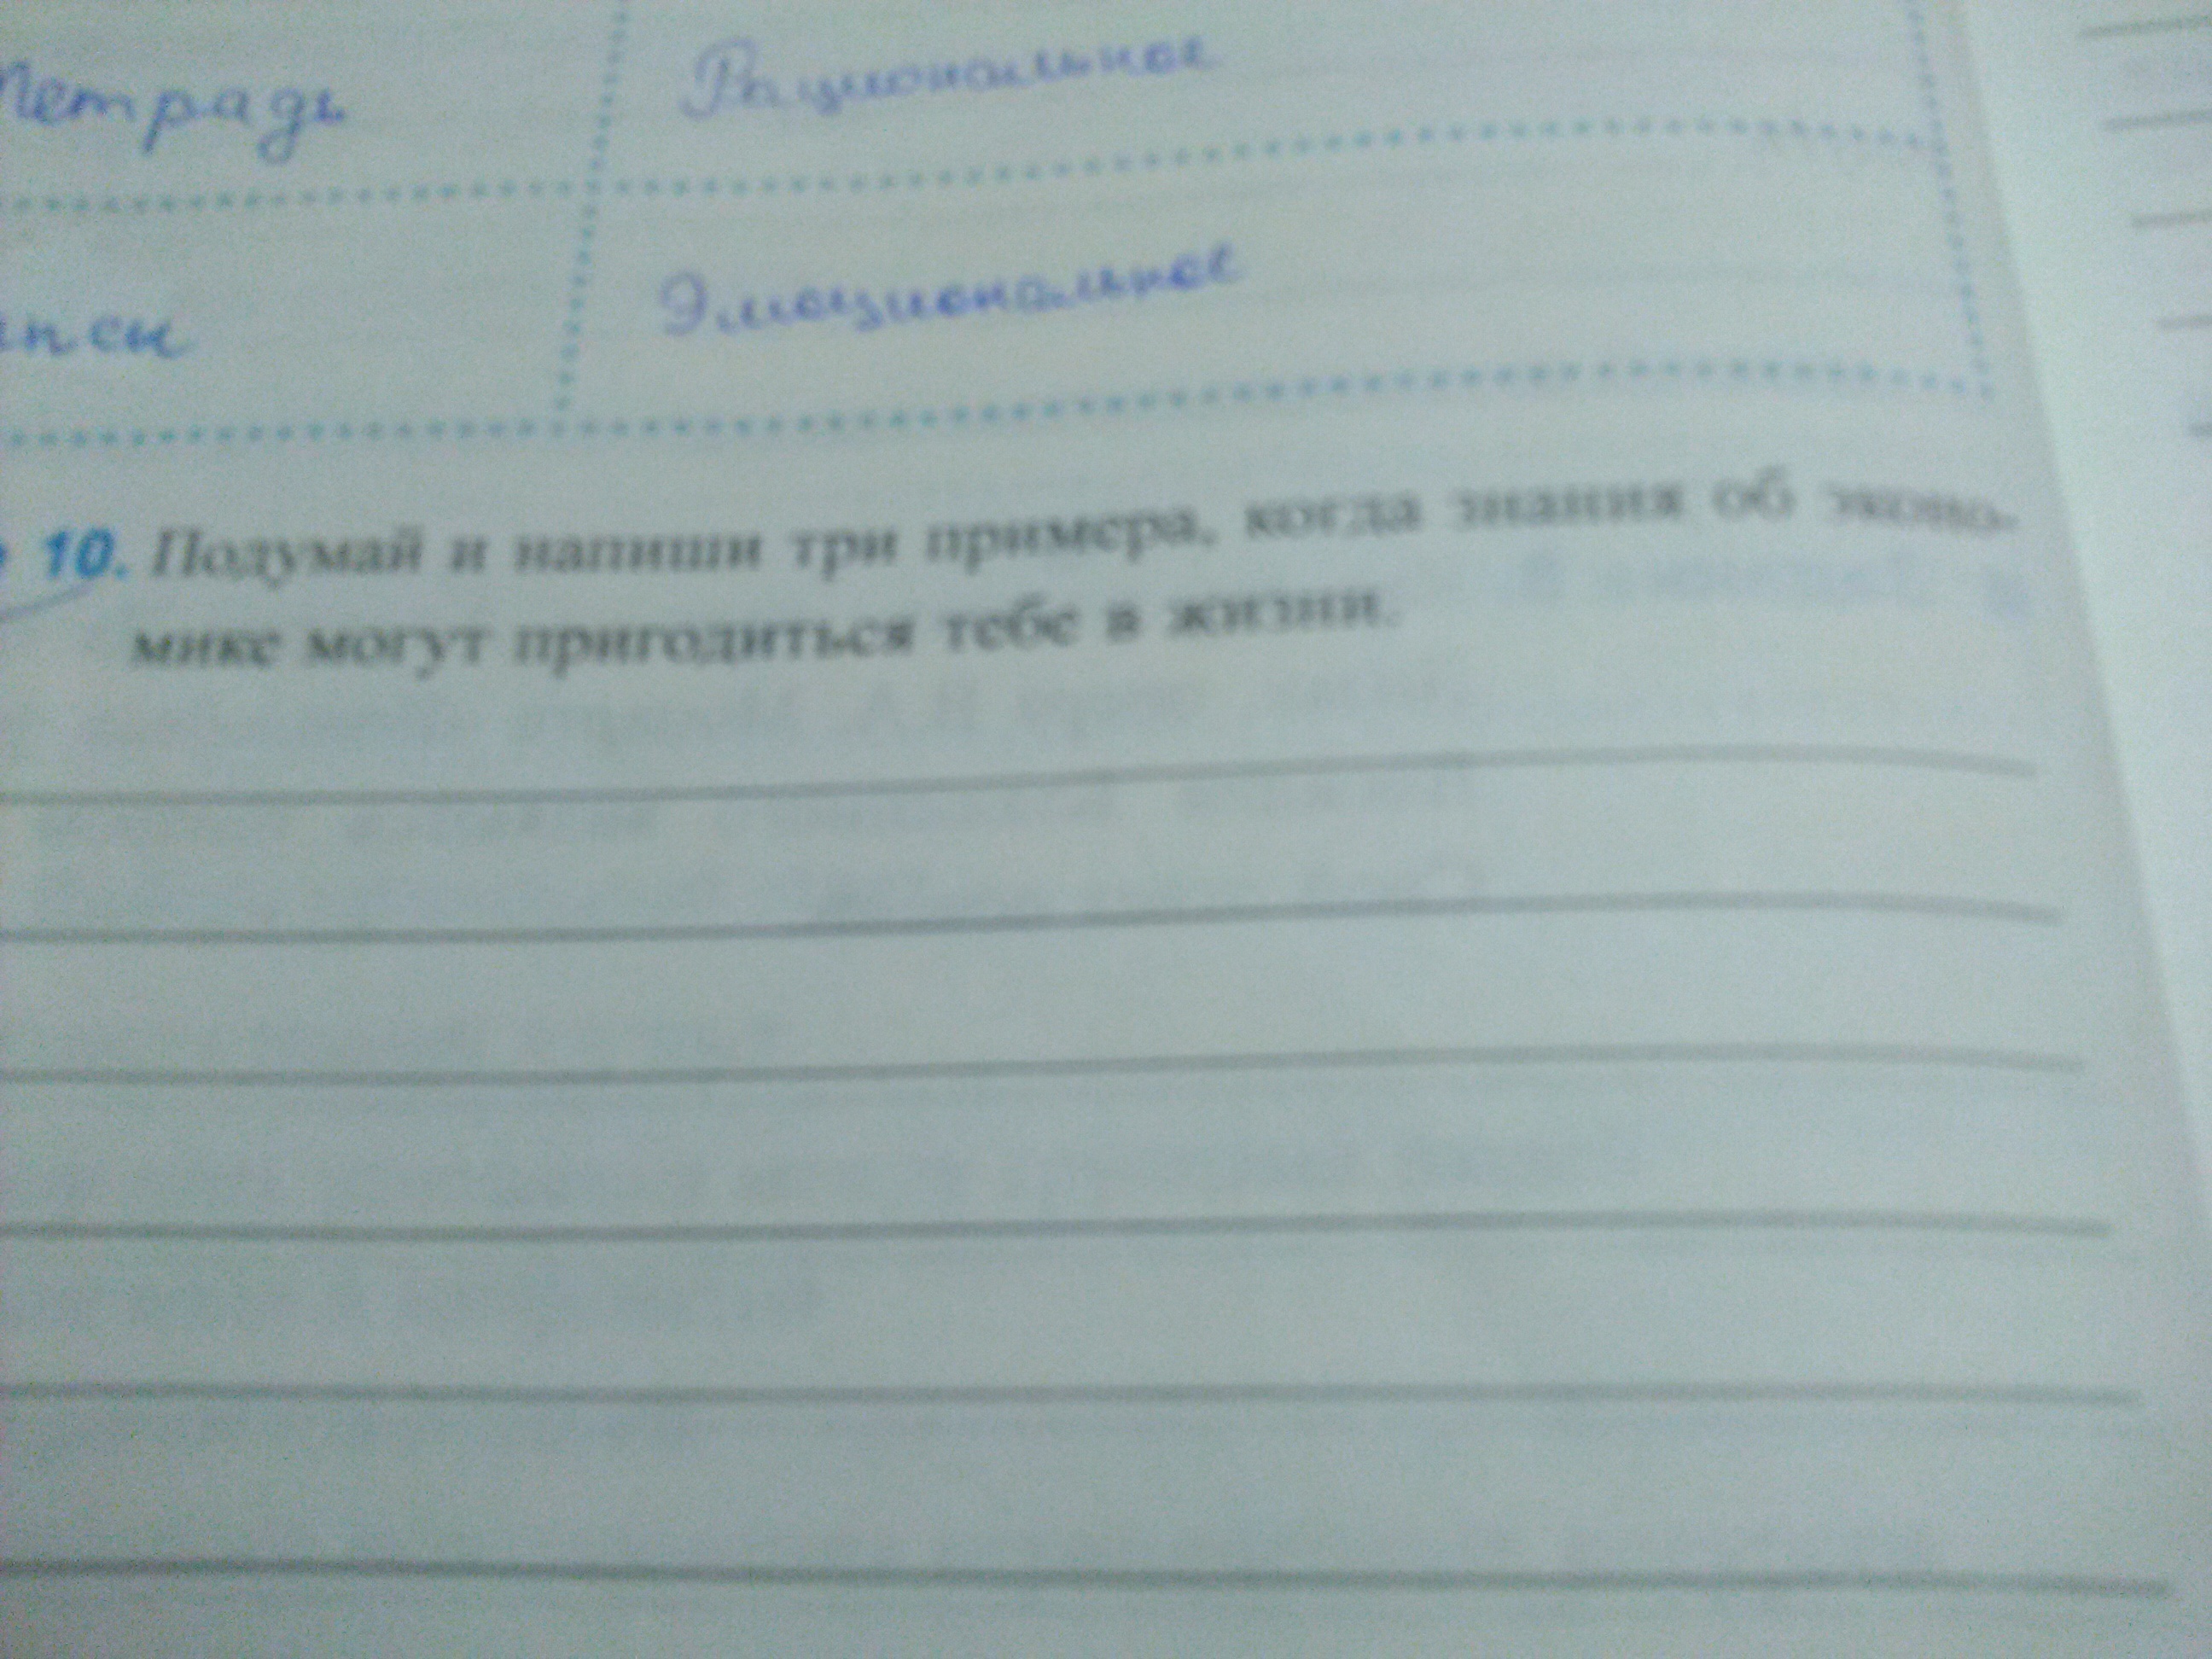 Тетрадь Рациональное
Эмоциональное
10. Подумай и напиши три примера, когда знания об эконо-
мике могут пригодиться тебе в жизни.